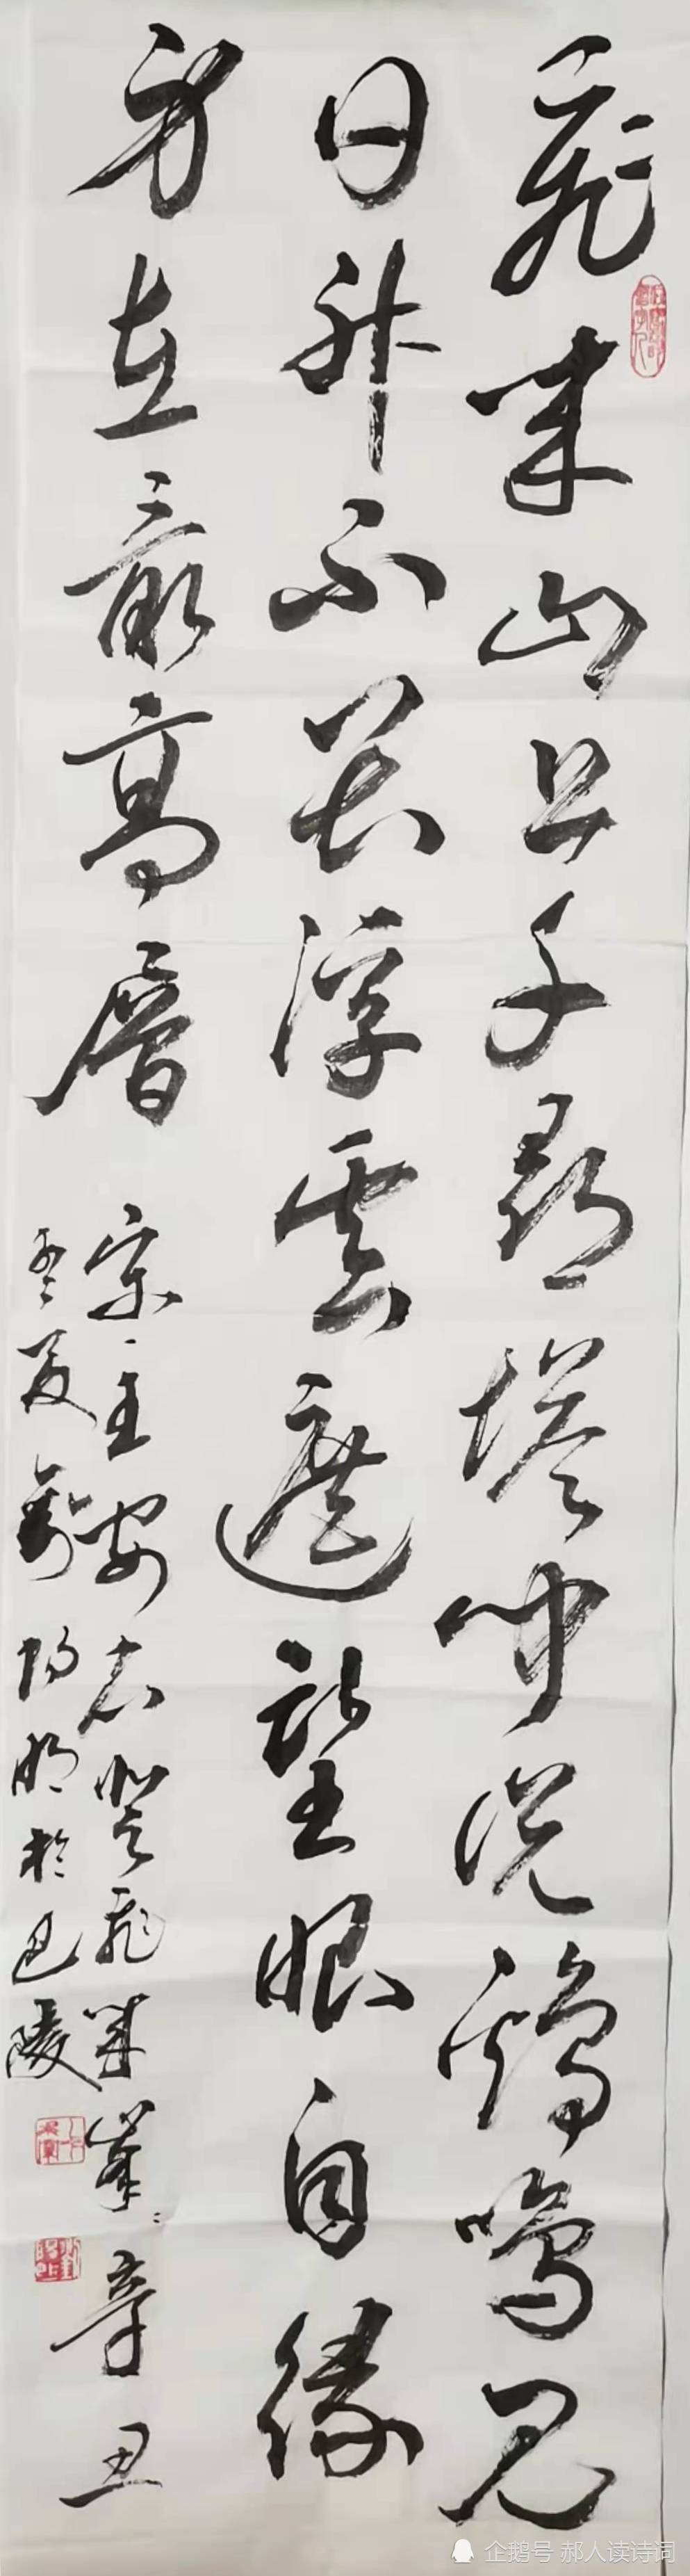 飛来山上千尋塔聞說鷄鳴見
日升不畏浮雲遮望眼自緣
身在最高層
宋王安石登飛来峯辛丑
夏劉陽明於巴陵
企鹅号 郝人读诗词